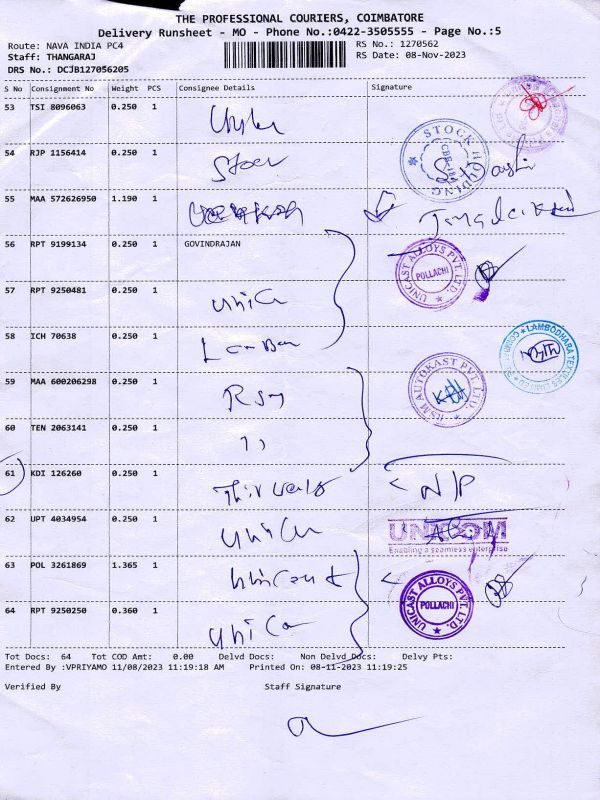 THE PROFESSIONAL COURIERS, COIMBATORE
Delivery Runsheet - MO - Phone No.:0422-3505555 - Page No.:5
Route: NAVA INDIA PC4
RS No.: 1270562
Staff: THANGARAJ
RS Date: 08-Nov-2023
DRS No.: DCJB127056205
S No Consignment No Weight PCS Consignee Details Signature
53 TSI 8096063 0.250 1
54 RJP 1156414 0.250 1 Stock
STOCK HOLDING
CBE-18
55 MAA 572626950 1.190 1
56 RPT 9199134 0.250 1 GOVINDRAJAN
UNICAST ALLOYS PVT. LTD.
POLLACHI
57 RPT 9250481 0.250 1 Unica
58 ICH 70638 0.250 1
LAMBODHARA TEXTILES LIMITED
59 MAA 600206298 0.250 1 RSM
RSM AUTOKAST PVT. LTD.
60 TEN 2063141 0.250 1 "
61 KDI 126260 0.250 1 N/P
62 UPT 4034954 0.250 1
UNICOM
Enabling a seamless enterprise
63 POL 3261869 1.365 1 Unicast
64 RPT 9250250 0.360 1 Unica
UNICAST ALLOYS PVT. LTD.
POLLACHI
Tot Docs: 64 Tot COD Amt: 0.00 Delvd Docs: Non Delvd Docs: Delvy Pts:
Entered By :VPRIYAMO 11/08/2023 11:19:18 AM Printed On: 08-11-2023 11:19:25
Verified By Staff Signature